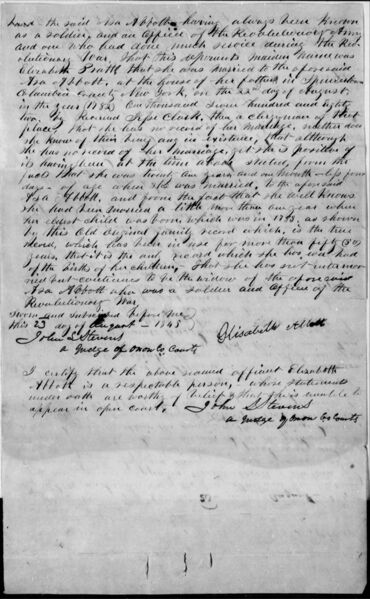 heard the said Asa Abbott having always been known
as a soldier and an officer of the Revolutionary Army
and one who had done much service during the Rev
olutionary War. That this deponents maiden name was
Elizabeth Pratt that she was married to the aforesaid
Asa Abbott, at the house of her father in Spencertown
Columbia County New York, on the 22d day of August,
in the year (1782) One thousand seven hundred and eighty
two, by Reverend Jesse Clark, then a clergyman of that
place, that she has no record of her marriage, neither does
she know of their being any in existence, that although
she has no record of her marriage, yet she is positive of
its having been at the time above stated, from the
fact that she was twenty one years and one month
days of age when she was married, to the aforesaid
Asa Abbott, and from the fact that she well knows
she had been married a little more than one year when
her first child was born, which was in 1783, as shown
by this Old Original family record which, is the true
record, which has been in use for more than fifty (50)
years, that it is the only record which she has, ever had
of the births of her children, That she has not intermar
ried but continues to be the widow of the aforesaid
Asa Abbott who was a soldier and officer of the
Revolutionary War,
Sworn and subscribed before me
this 23 day of August 1845
John L Stevens
a Judge of Onon Co Courts
Elisabeth Abbott
I certify that the above named affiant Elizabeth
Abbott is a respectable person, whose statements
under oath are worthy of belief & that she is unable to
appear in open court,
John L Stevens
a Judge of Onon Co Courts